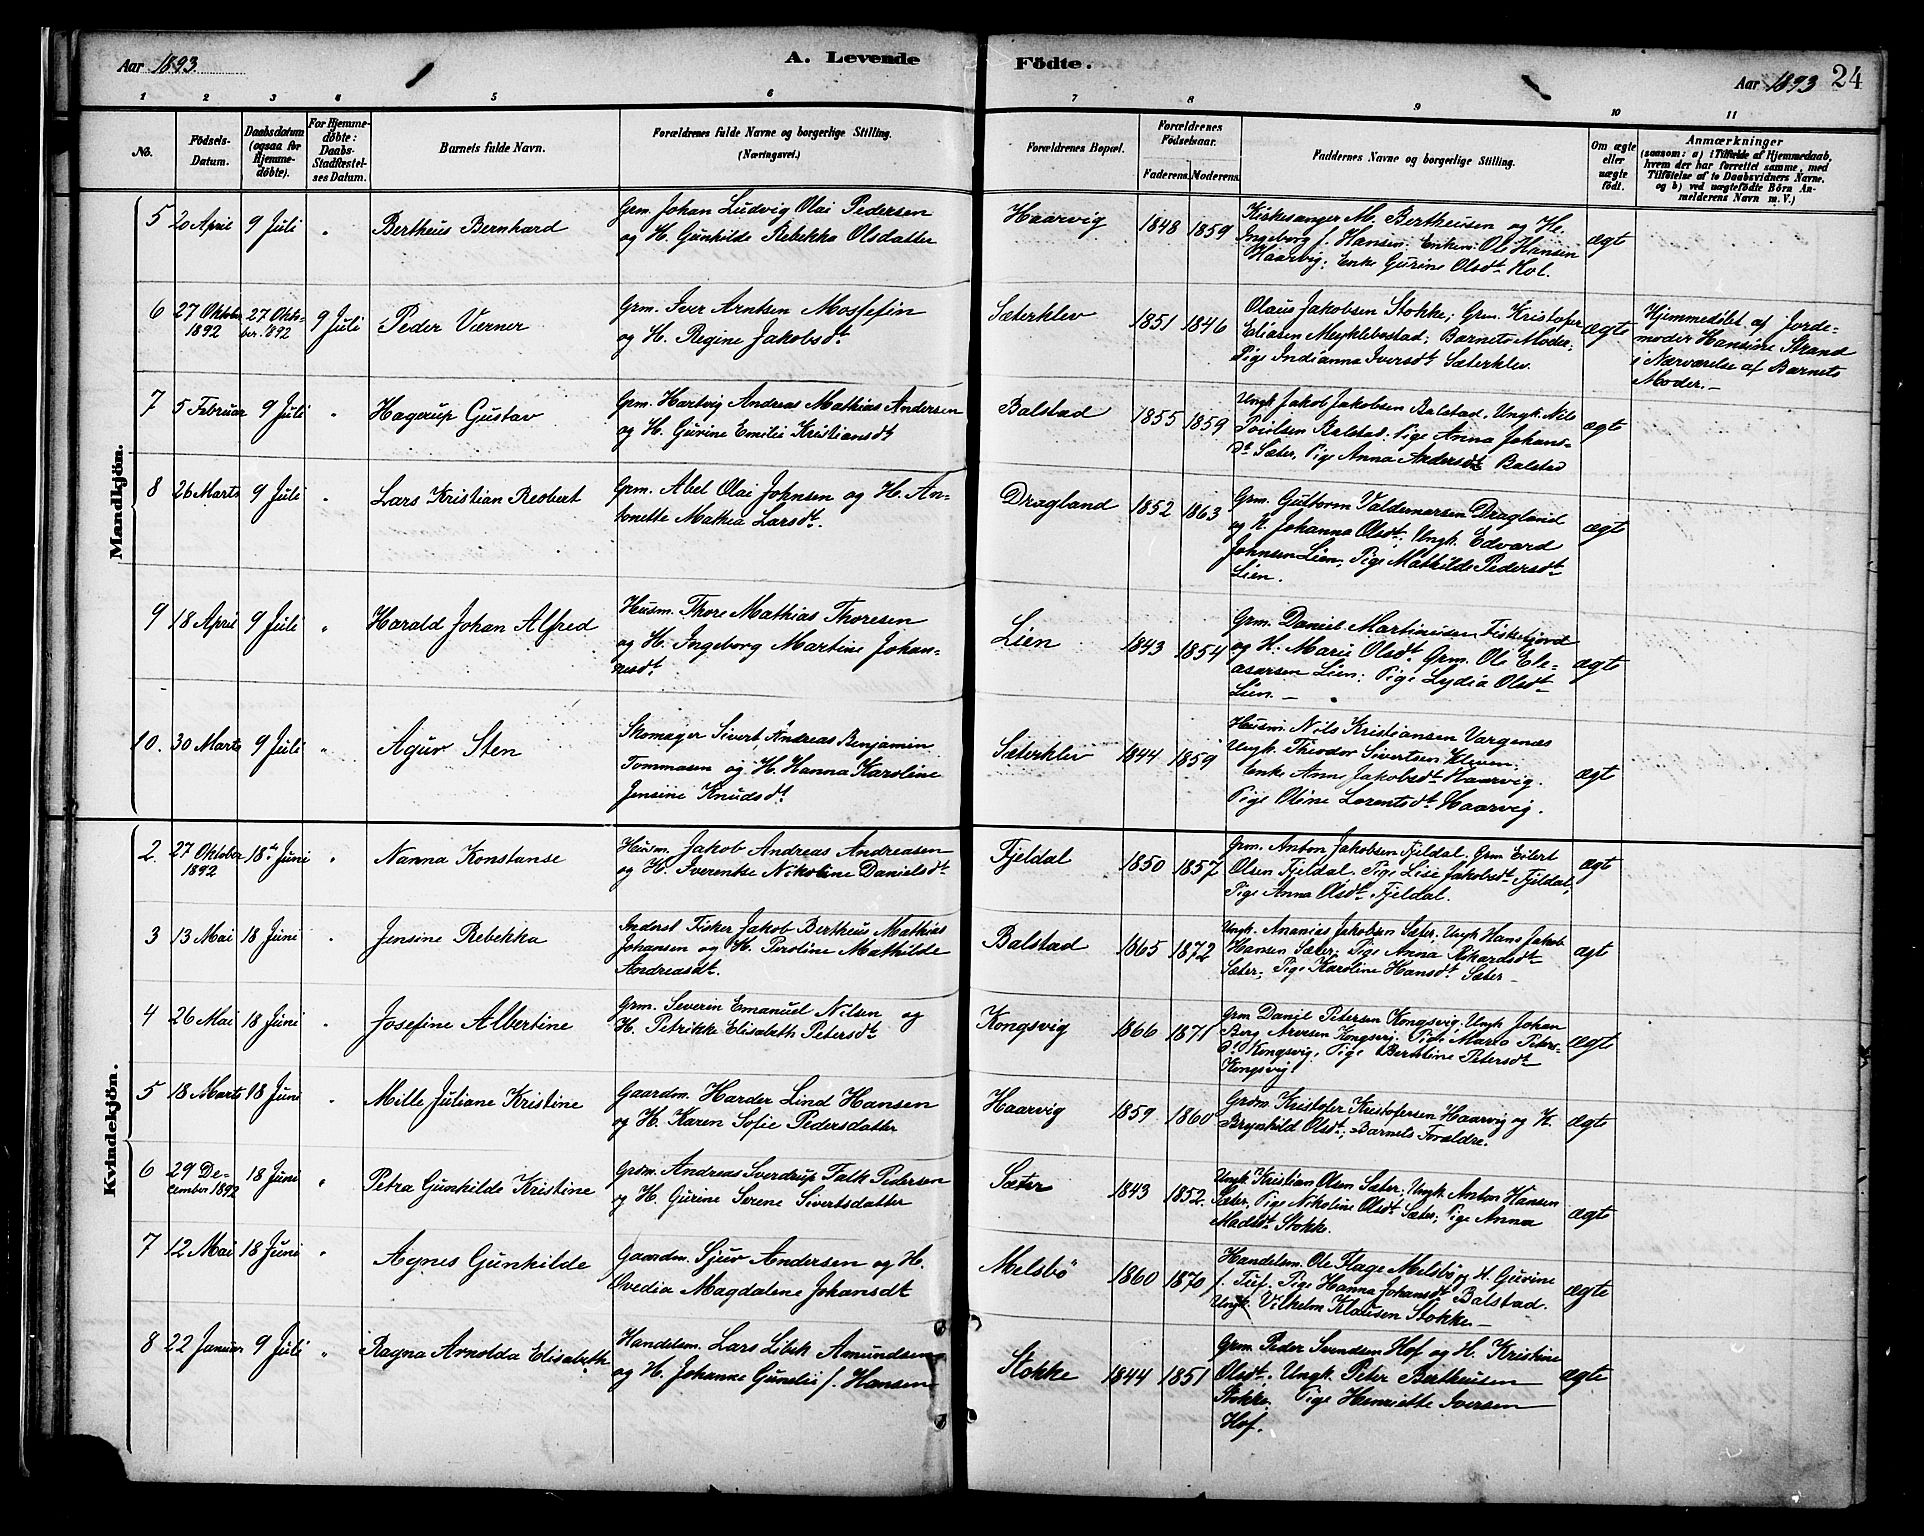 Aar 1893.
A. Levende
Födte.
Aar 1893
24
1 2 3 4 5 6 7 8 9 10 11
No.
Födsels-Datum.
Daabsdatum (ogsaa for Hjemme-döbte).
For Hjemme-döbte: Daabs-Stadfæstel-ses Datum.
Barnets fulde Navn.
Forældrenes fulde Navne og borgerlige Stilling.
(Næringsvei.)
Forældrenes Bopæl.
Forældrenes Födselsaar.
Faderens. Moderens.
Faddernes Navne og borgerlige Stilling.
Om ægte eller uægte födt.
Anmærkninger
(saasom: a) i Tilfælde af Hjemmedaab,
hvem der har forrettet samme, med
Tilföielse af to Daabsvidners Navne.
og b) ved uægtefödte Börn An-
melderens Navn m. V.)
Mandkjön.
5 20 April 9 Juli " Bertheus Bernhard
Grm. Johan Ludvig Olai Pedersen
og H. Gunhilde Rebekka Olsdatter
Haarvig 1848 1859
Kirkesanger M. Bertheusen og H.
Ingeborg f. Hansen. Enkem. Ole Hansen
Haarvig; Enke Gurine Olsdt. Hol.
ægte
6 27 Oktober 1892 27 Okto-ber 1892 9 Juli Peder Værner
Grm. Iver Arntsen
og H. Regine Jakobsdt.
Sæterklev 1851 1846
Olaus Jakobsen Stokke; Grm. Kristofer
Eliasen Myklebostad; Barnets Moder;
Pige Indianna Iversdt. Sæterklev.
ægte
Hjemmedöbt af Jorde-
moder Hansine Strand
i Nærværelse af Barnets
Moder.-
7 5 Februar 9 Juli " Hagerup Gustav
Grm. Hartvig Andreas Mathias Andersen
og H. Gurine Emilie Kristiansdt
Balstad 1855 1859
Ungk. Jakob Jakobsen Balstad. Ungk. Nils
Poulsen Balstad. Pige Anna Johans-
dt. Sæter, Pige Anna Andersdt. Balstad
ægte
8 26 Marts 9 Juli " Lars Kristian Reobert
Grm. Abel Olai Johnsen og H. An-
tonette Mathea Larsdt.
Dragland 1852 1863
Grm. Guttorm Valdemarsen Dragland
og H. Johanna Olsdt; Ungk. Edvard
Johnsen Lien; Pige Mathilde Pedersdt.
Lien.
ægte
9 18 April 9 Juli " Harald Johan Alfred
Husm. Thore Mathias Thoresen
og H. Ingeborg Martine Johan-
nesdt.
Lien 1843 1854
Grm. Daniel Martinusen Fiskefjord
og H. Marie Olsdt. Grm. Ole Ele-
asarsen Lien; Pige Lydia Olsdt.
Lien.-
ægte
10. 30 Marts 9 Juli " Agur Sten
Skomager Sivert Andreas Benjamin
Tommasen og H. Hanna Karoline
Jensine Knudsdt.
Sæterklev 1844 1859
Husm. Nils Kristiansen Vargenæs
Ungk. Theodor Sivertsen Kleven;
Enke Anne Jakobsdt. Haarvig.
Pige Oline Lorentsdt. Haarvig.
ægt
Kvindekjön.
2. 27 Oktober 1892 18de Juni " Nanna Konstanse
Husm. Jakob Andreas Andreasen
og H. Iverentse Nikoline Danielsdt
Fjeldal 1850 1857
Grm. Anton Jakobsen Fjeldal. Grm Eilert
Olsen Fjeldal. Pige Lise Jakobsdt. Fjeldal,
Pige Anna Olsdt. Fjeldal.
ægte
3 13 Mai 18 Juni " Jensine Rebekka
Inderst Fisker Jakob Bertheus Mathias
Johansen og H. Peroline Mathilde
Andreasdt.
Balstad 1865 1872
Ungk. Ananias Jakobsen Sæter, Ungk Hans Jakob
Hansen Sæter, Pige Anna Rikardsdt.
Sæter; Pige Karoline Hansdt. Sæter-
ægte
4 26 Mai 18 Juni " Josefine Albertine
Grm. Severin Emanuel Nilsen og
H. Petrikke Elisabeth Petersdt.
Kongsvig 1866 1871
Grm Daniel Petersen Kongsvig, Ungk Johan
Berg Arnesen Kongsvig; Pige Maria Peters-
dt. Kongsvig; Pige Berntine Petersdt.
Kongsvig
ægte
5 18 Marts 18 Juni " Mille Juliane Kristine
Gaardm. Harder Lind Hansen
og H. Karen Sofie Pedersdatter
Haarvig 1859 1860
Grdm. Kristofer Kristofersen Haarvig og H.
Brynhild Olsdt.; Barnets Forældre.
ægte
6 29 De-cember 1892 18 Juni " Petra Gunhilde Kristine
Grdm. Andreas Sverdrup Falk Pedersen
og H. Gurine Serene Sivertsdatter
Sæter 1843 1852
Ungk Kristian Olsen Sæter; Ungk. Anton Hansen
Sæter, Pige Nikoline Olsdt. Sæter; Pige Anna
Madsdt. Stokke.
ægte
7 12 Mai 18 Juni " Agnes Gunhilde
Gaardm. Sjur Andersen og H.
Ovedia Magdalene Johansdt
Melsbö 1860 1870
Handelsm. Ole Flage Melsbö og H. Gurine
f. Tuf. Pige Hanna Johansdt Balstad.
Ungk. Vilhelm Klausen Stokke.-
ægte
8 22 Januar 9 Juli " Ragna Arnolda Elisabeth
Handelsm. Lars Libek Amundsen
og H. Johanne Gunelie f. Hansen
Stokke 1844 1851
Grm. Peder Svendsen Hof og H. Kristine
Olsdt. Ungk. Peter Bertheusen
Stokke. Pige Henriette Iversen
Hof.
ægte